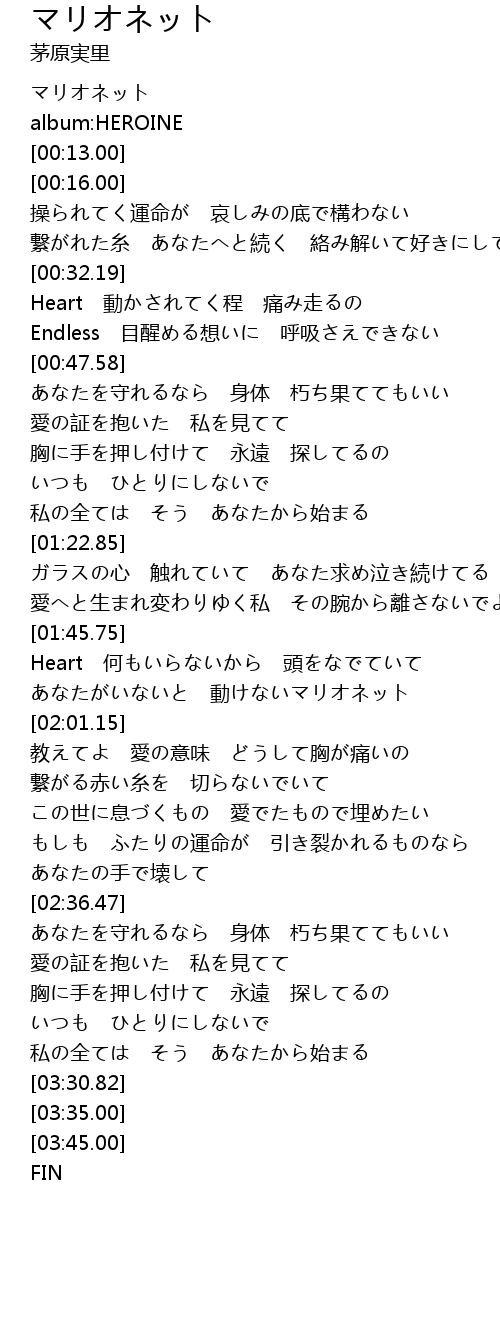 マリオネット
茅原実里
マリオネット
album:HEROINE
[00:13.00]
[00:16.00]
操られてく運命が　哀しみの底で構わない
繋がれた糸　あなたへと続く　絡み解いて好きにして
[00:32.19]
Heart　動かされてく程　痛み走るの
Endless　目醒める想いに　呼吸さえできない
[00:47.58]
あなたを守れるなら　身体　朽ち果ててもいい
愛の証を抱いた　私を見てて
胸に手を押し付けて　永遠　探してるの
いつも　ひとりにしないで
私の全ては　そう　あなたから始まる
[01:22.85]
ガラスの心　触れていて　あなた求め泣き続けてる
愛へと生まれ変わりゆく私　その腕から離さないでよ
[01:45.75]
Heart　何もいらないから　頭をなでていて
あなたがいないと　動けないマリオネット
[02:01.15]
教えてよ　愛の意味　どうして胸が痛いの
繋がる赤い糸を　切らないでいて
この世に息づくもの　愛でたもので埋めたい
もしも　ふたりの運命が　引き裂かれるものなら
あなたの手で壊して
[02:36.47]
あなたを守れるなら　身体　朽ち果ててもいい
愛の証を抱いた　私を見てて
胸に手を押し付けて　永遠　探してるの
いつも　ひとりにしないで
私の全ては　そう　あなたから始まる
[03:30.82]
[03:35.00]
[03:45.00]
FIN